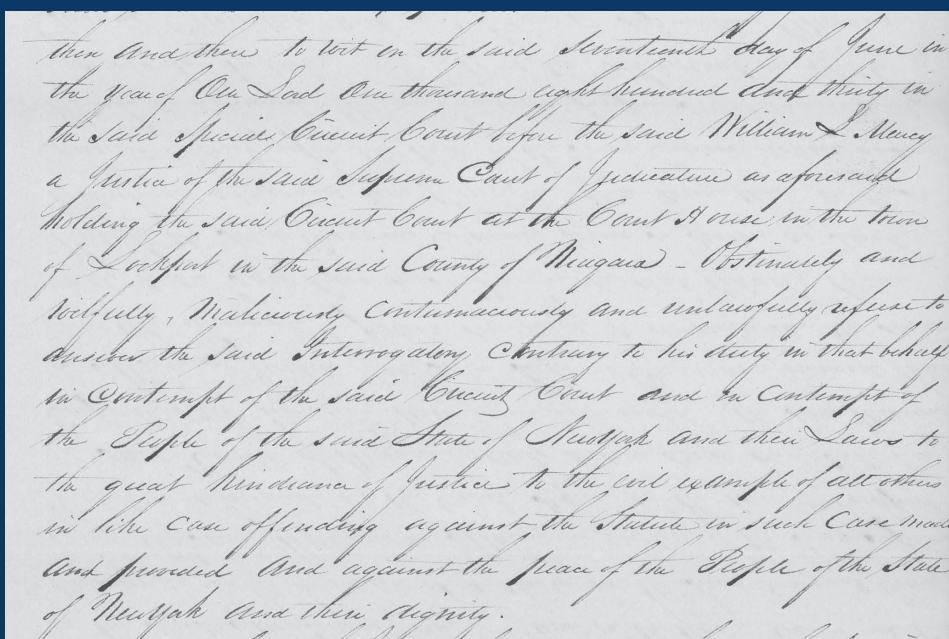 then and there to wit on the said seventeenth day of June in
the year of Our Lord One thousand eight hundred and thirty in
the said Special Circuit Court before the said William L Marcy
a Justice of the said Supreme Court of Judicature as aforesaid
holding the said Circuit Court at the Court House in the town
of Lockport in the said County of Niagara - Obstinately and
wilfully, maliciously contumaciously and unlawfully refuse to
answer the said Interrogatory Contrary to his duty in that behalf
in Contempt of the said Circuit Court and in contempt of
the People of the said State of NewYork and their Laws to
the great hindrance of Justice to the evil example of all others
in like case offending against the Statute in such case made
and provided and against the peace of the People of the State
of NewYork and their dignity.